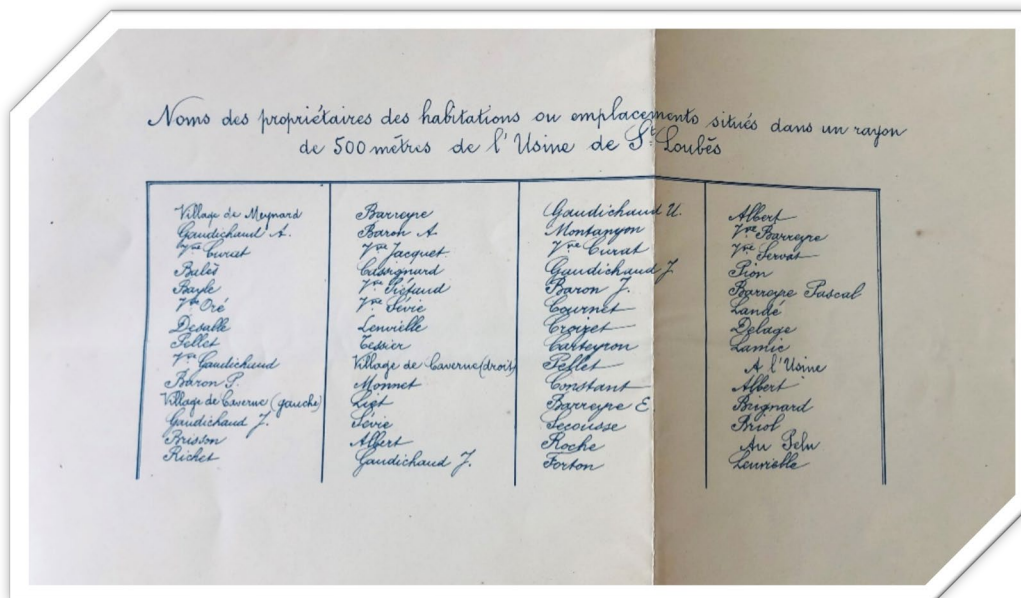 Noms des propriétaires des habitations ou emplacements situés dans un rayon
de 500 mètres de l'Usine de St Loubès
Village de Meynard
Gaudichaud A.
Vve Curat
Balès
Bayle
Vve Oré
Desalle
Pellet
Vve Gaudichaud
Baron P.
Village de Caverne (gauche)
Gaudichaud J.
Brisson
Richet
Barreyre
Baron A
Vve Jacquet
Vve Pétaud
Vve Sévie
Lenvielle
Tessier
Village de Caverne (droit)
Monnet
Liet
Sévie
Albert
Gaudichaud J.
Gaudichaud U.
Montanyon
Vve Curat
Gaudichaud J.
Baron J.
Cournet
Croizet
Carteyron
Pellet
Constant
Barreyre E
Secousse
Roche
Forton
Albert
Vve Barreyre
Vve Servat
Pion
Barreyre Pascal
Landé
Delage
Lamic
A l'Usine
Albert
Brignard
Briol
Lenvielle